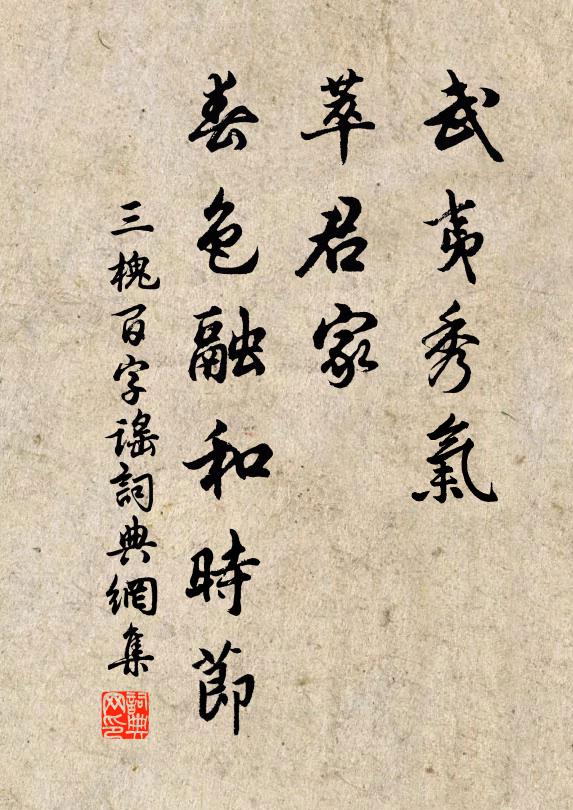 武夷秀氣
萃君家
春色融和時節
三槐百字謠詞典網集
詞典
网印